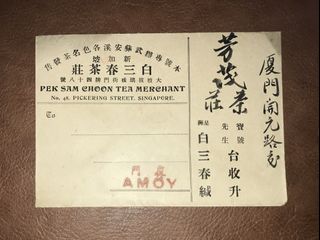 本號專辦武彝安溪各色名茶發售
新加坡
白三春茶莊
街門牌四十八號
PEK SAM CHOON TEA MERCHANT
No. 48, PICKERING STREET, SINGAPORE.
To
廈門
AMOY
廈門開元路交
芳茂茶莊
寶號
先生
台收升
白三春緘